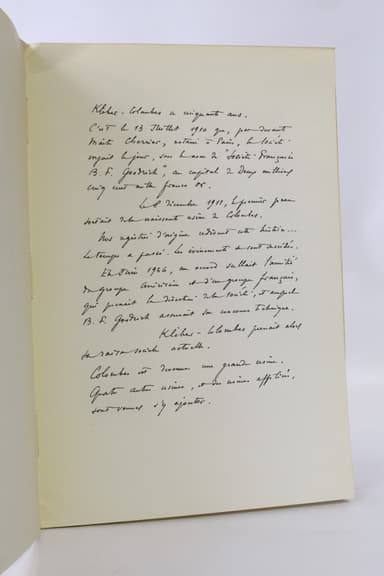 Kléber-Colombes a cinquante ans.
C'est le 13 Juillet 1910 que, par devant
Maître Cherrier, notaire à Paris, la Société
voyait le jour, sous le nom de "Société Française
B. F. Goodrich", au capital de Deux millions
cinq cent mille francs or.
Le 8 décembre 1911, le premier pneu
sortait de la naissante usine de Colombes.
Nos registres d'origine redisent cette histoire...
Le temps a passé. Les événements se sont succédés.
En Juin 1946, un accord scellait l'amitié
du groupe américain et d'un groupe français,
qui prenait la direction de la société, et auquel
B. F. Goodrich assurait son concours technique.
Kléber-Colombes prenait alors
sa raison sociale actuelle.
Colombes est devenue une grande usine.
Quatre autres usines, et des usines affiliées,
sont venues s'y ajouter.